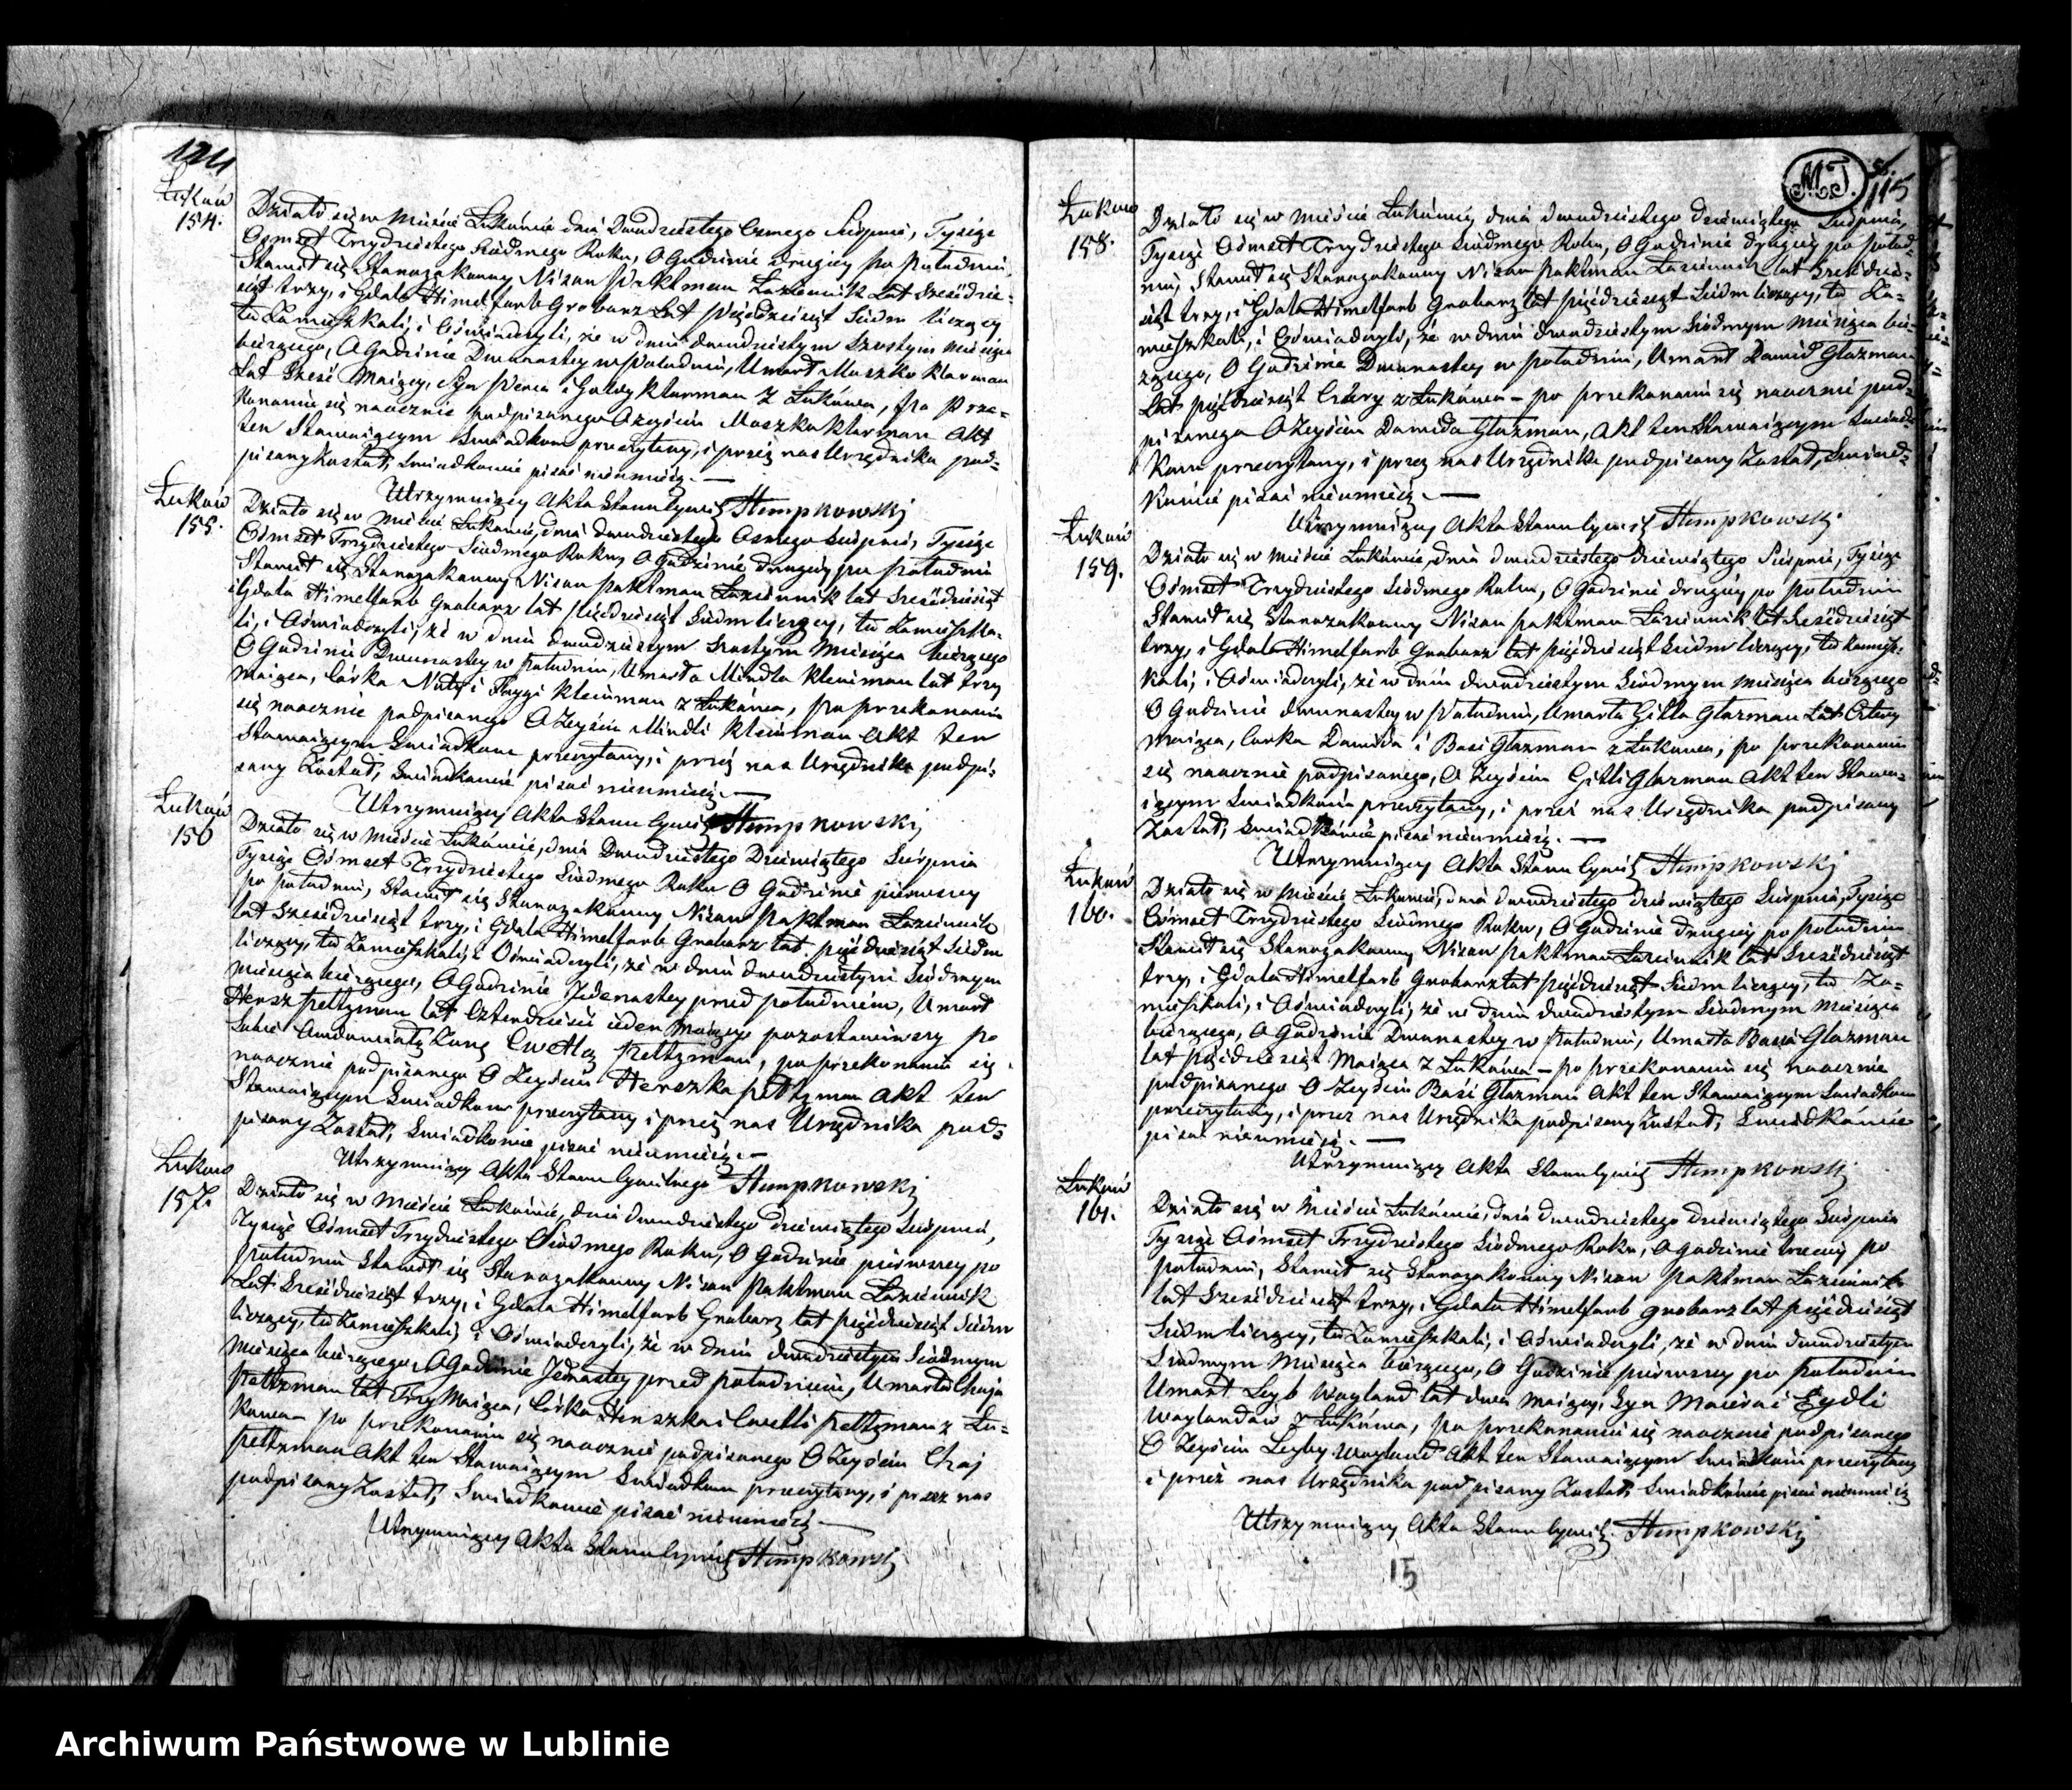 Łuków
154.
Działo się w Mieście Łukowie dnia Dwudziestego Osmego Sierpnia, Tysiąc
Ośmset Trzydziestego Siódmego Roku, O Godzinie drugiey po Południu,
Stawił się Starozakonny Nisan Paktman Łaziennik Lat Sześćdzie-
siąt trzy, i Gdala Himelfarb Grobarz Lat Pięćdziesiąt Siedm liczący
tu Zamieszkali, i Oświadczyli, że w dniu dwudziestym Szóstym Miesiąca
bieżącego, O Godzinie Dwunastey w Południe, Umarł Moszko Klarman
Lat Sześć Maiący, Syn i Klarman Z Łukowa, Po Prze-
konaniu się naocznie podpisanego O Zeyściu Moszka Klarman Akt
ten Stawaiącym Świadkom przeczytany, i przez nas Urzędnika pod-
pisany Został, Świadkowie pisać nieumieią. —
Utrzymuiący Akta Stanu Cywil Stempkowski
Łuków
155.
Działo się w Mieście Łukowie, dnia dwudziestego Osmego Sierpnia, Tysiąc
Ośmset Trzydziestego Siódmego Roku, O Godzinie drugiey po Południu
Stawił się Starozakonny Nisan Paktman Łaziennik lat Sześćdziesiąt
i Gdala Himelfarb Grobarz lat Pięćdziesiąt Siedm liczący, tu Zamieszka-
li, i Oświadczyli, że w dniu dwudziestym Szóstym Miesiąca bieżącego
O Godzinie Dwunastey w Południe, Umarła Mindla Kleiman lat trzy
Maiąca, Córka i Kleiman z Łukowa, Po przekonaniu
się naocznie podpisanego O Zeyściu Mindli Kleiman Akt ten
Stawaiącym Świadkom przeczytany, i przez nas Urzędnika podpi-
sany Został, Świadkowie pisać nieumieią. —
Utrzymuiący Akta Stanu Cywil Stempkowski
Łuków
156
Działo się w Mieście Łukowie, dnia Dwudziestego Dziewiątego Sierpnia
Tysiąc Ośmset Trzydziestego Siódmego Roku O Godzinie pierwszey
po południu, Stawił się Starozakonny Nisan Paktman Łaziennik
lat Sześćdziesiąt trzy, i Gdala Himelfarb Grobarz lat pięćdziesiąt Siedm
liczący, tu Zamieszkali, i Oświadczyli, że w dniu dwudziestym Siódmym
Miesiąca bieżącego, O Godzinie Jedenastey przed południem, Umarł
Hersz Peltzman lat Czterdzieści ieden Maiący pozostawiwszy po
Sobie Owdowiałą Żonę Cwetlą Peltzman, po przekonaniu się
naocznie podpisanego O Zeyściu Herszka Peltzman Akt ten
Stawaiącym Świadkom przeczytany i przez nas Urzędnika pod-
pisany Został, Świadkowie pisać nieumieią. —
Utrzymuiący Akta Stanu Cywilnego Stempkowski
Łuków
157.
Działo się w Mieście Łukowie, dnia dwudziestego dziewiątego Sierpnia,
Tysiąc Ośmset Trzydziestego Siódmego Roku, O Godzinie pierwszey po
południu Stawił się Starozakonny Nisan Paktman Łaziennik
Lat Sześćdziesiąt trzy, i Gdala Himelfarb Grobarz lat pięćdziesiąt Siedm
liczący, tu Zamieszkali, i Oświadczyli, że w dniu dwudziestym Siódmym
Miesiąca bieżącego, O Godzinie Jedenastey przed południem, Umarła Chaja
Peltzman lat Trzy Maiąca, Córka Herszka i Cwetli Peltzman z Łu-
kowa — po przekonaniu się naocznie podpisanego O Zeyściu Chaj
Peltzman Akt ten Stawaiącym Świadkom przeczytany, i przez nas
podpisany Został, Świadkowie pisać nieumieią. —
Utrzymuiący Akta Stanu Cywil Stempkowski
M.J.
115
Łuków
158.
Działo się w Mieście Łukowie, dnia dwudziestego dziewiątego Sierpnia,
Tysiąc Ośmset Trzydziestego Siódmego Roku, O Godzinie drugiey po połud-
niu, Stawił się Starozakonny Nisan Paktman Łaziennik lat Sześćdzie-
siąt trzy, i Gdala Himelfarb Grobarz lat pięćdziesiąt Siedm liczący, tu Za-
mieszkali, i Oświadczyli, że w dniu dwudziestym Siódmym Miesiąca bie-
żącego, O Godzinie Dwunastey w południe, Umarł Dawid Glazman
Lat pięćdziesiąt Cztery z Łukowa — po przekonaniu się naocznie pod-
pisanego O Zeyściu Dawida Glazman, Akt ten Stawaiącym Świad-
kom przeczytany, i przez nas Urzędnika podpisany Został, Świad-
kowie pisać nieumieią. —
Utrzymuiący Akta Stanu Cywil Stempkowski
Łuków
159.
Działo się w Mieście Łukowie, dnia dwudziestego dziewiątego Sierpnia, Tysiąc
Ośmset Trzydziestego Siódmego Roku, O Godzinie drugiey po południu
Stawił się Starozakonny Nisan Paktman Łaziennik lat Sześćdziesiąt
trzy, i Gdala Himelfarb Grobarz lat pięćdziesiąt Siedm liczący, tu Zamiesz-
kali, i Oświadczyli, że w dniu dwudziestym Siódmym Miesiąca bieżącego
O Godzinie dwunastey w Południe, Umarła Gitla Glazman Lat Cztery
Maiąca, Corka Dawida i Basi Glazman z Łukowa, po przekonaniu
się naocznie podpisanego, O Zeyściu Gitli Glazman Akt ten Stawa-
iącym Świadkom przeczytany, i przez nas Urzędnika podpisany
Został, Świadkowie pisać nieumieią. —
Utrzymuiący Akta Stanu Cywil Stempkowski
Łuków
160.
Działo się w Mieście Łukowie, dnia dwudziestego dziewiątego Sierpnia, Tysiąc
Ośmset Trzydziestego Siódmego Roku, O Godzinie drugiey po południu
Stawił się Starozakonny Nisan Paktman Łaziennik lat Sześćdziesiąt
trzy, i Gdala Himelfarb Grobarz lat pięćdziesiąt Siedm liczący, tu Za-
mieszkali, i Oświadczyli, że w dniu dwudziestym Siódmym Miesiąca
bieżącego, O Godzinie Dwunastey w Południe, Umarła Basia Glazman
lat pięćdziesiąt Maiąca Z Łukowa — po przekonaniu się naocznie
podpisanego O Zeyściu Basi Glazman Akt ten Stawaiącym Świadkom
przeczytany, i przez nas Urzędnika podpisany Został, Świadkowie
pisać nieumieią. —
Utrzymuiący Akta Stanu Cywil Stempkowski
Łuków
161.
Działo się w Mieście Łukowie, dnia dwudziestego dziewiątego Sierpnia
Tysiąc Ośmset Trzydziestego Siódmego Roku, O godzinie trzeciey po
południu, Stawił się Starozakonny Nisan Paktman Łaziennik
lat Sześćdziesiąt trzy, i Gdala Himelfarb grobarz lat pięćdziesiąt
Siedm liczący, tu Zamieszkali, i Oświadczyli, że w dniu dwudziestym
Siódmym Miesiąca bieżącego, O Godzinie pierwszey po południu
Umarł Leyb Wagland lat dwa Maiący, Syn i Eydli
Waglandów z Łukowa, po przekonaniu się naocznie podpisanego
O Zeyściu Leyby Wagland Akt ten Stawaiącym Świadkom przeczytany
i przez nas Urzędnika podpisany Został, Świadkowie pisać nieumieią
Utrzymuiący Akta Stanu Cywil. Stempkowski
15
Archiwum Państwowe w Lublinie